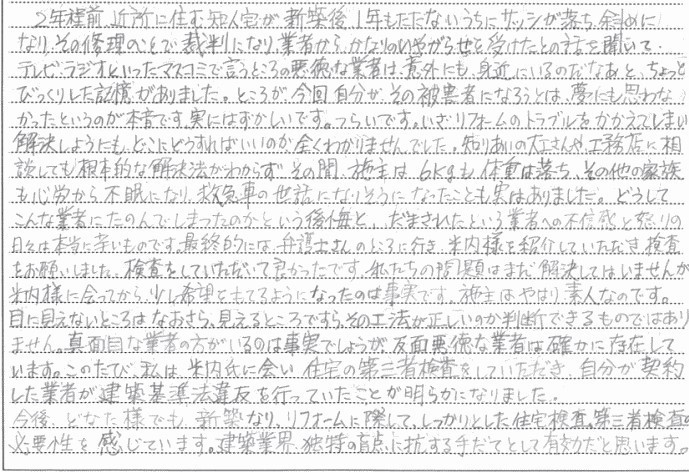 2年程前、近所に住む知人宅が新築後1年もたたないうちにサッシが落ち、斜めに
なり、その修理のことで裁判になり、業者からかなりのいやがらせを受けたとの話を聞いて、
テレビ・ラジオといったマスコミで言うところの悪徳な業者は、意外にも、身近にいるのだなあと、ちょっと
びっくりした記憶がありました。ところが、今回自分が、その被害者になろうとは、夢にも思わな
かったというのが本音です。実にはずかしいです。つらいです。いざリフォームのトラブルをかかえてしまい
解決しようにも、どこにどうすればいいのか全くわかりませんでした。知りあいの大工さんや、工務店に相
談しても根本的な解決法がわからず、その間、施主は、6kgも体重は落ち、その他の家族
も心労から不眠になり、救急車の世話になりそうになったことも実はありました。どうして
こんな業者にたのんでしまったのかという後悔と、だまされたという業者への不信感と怒りの
日々は本当に辛いものです。最終的には、弁護士さんのところに行き、米内様を紹介していただき、検査
をお願いしました。検査をしていただいて良かったです。私たちの問題はまだ解決してはいませんが
米内様に会ってから、少し希望をもてるようになったのは事実です。施主はやはり、素人なのです。
目に見えないところはなおさら、見えるところですら、その工法が正しいのか判断できるものではあり
ません。真面目な業者の方がいるのは事実でしょうが、反面悪徳な業者は確かに存在して
います。このたびで、私は、米内氏に会い、住宅の第三者検査をしていただき、自分が契約
した業者が建築基準法違反を行っていたことが明らかになりました。
今後、どなた様でも、新築なり、リフォームに際して、しっかりとした住宅検査、第三者検査の
必要性を感じています。建築業界独特の盲点に抗する手だてとして有効だと思います。